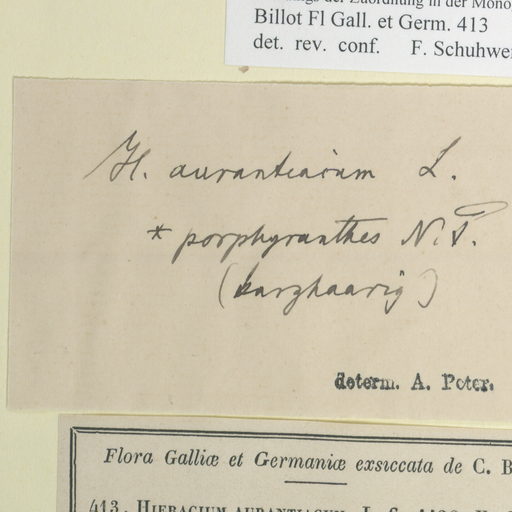 der Zuordnung in der Mono
Billot Fl Gall. et Germ. 413
det. rev. conf. F. Schuhwer
H. aurantiacum L.
* porphyranthes N. P.
(kurzhaarig)
determ. A. Peter.
Flora Galliæ et Germaniæ exsiccata de C. B
413. HIERACIUM AURANTIACUM